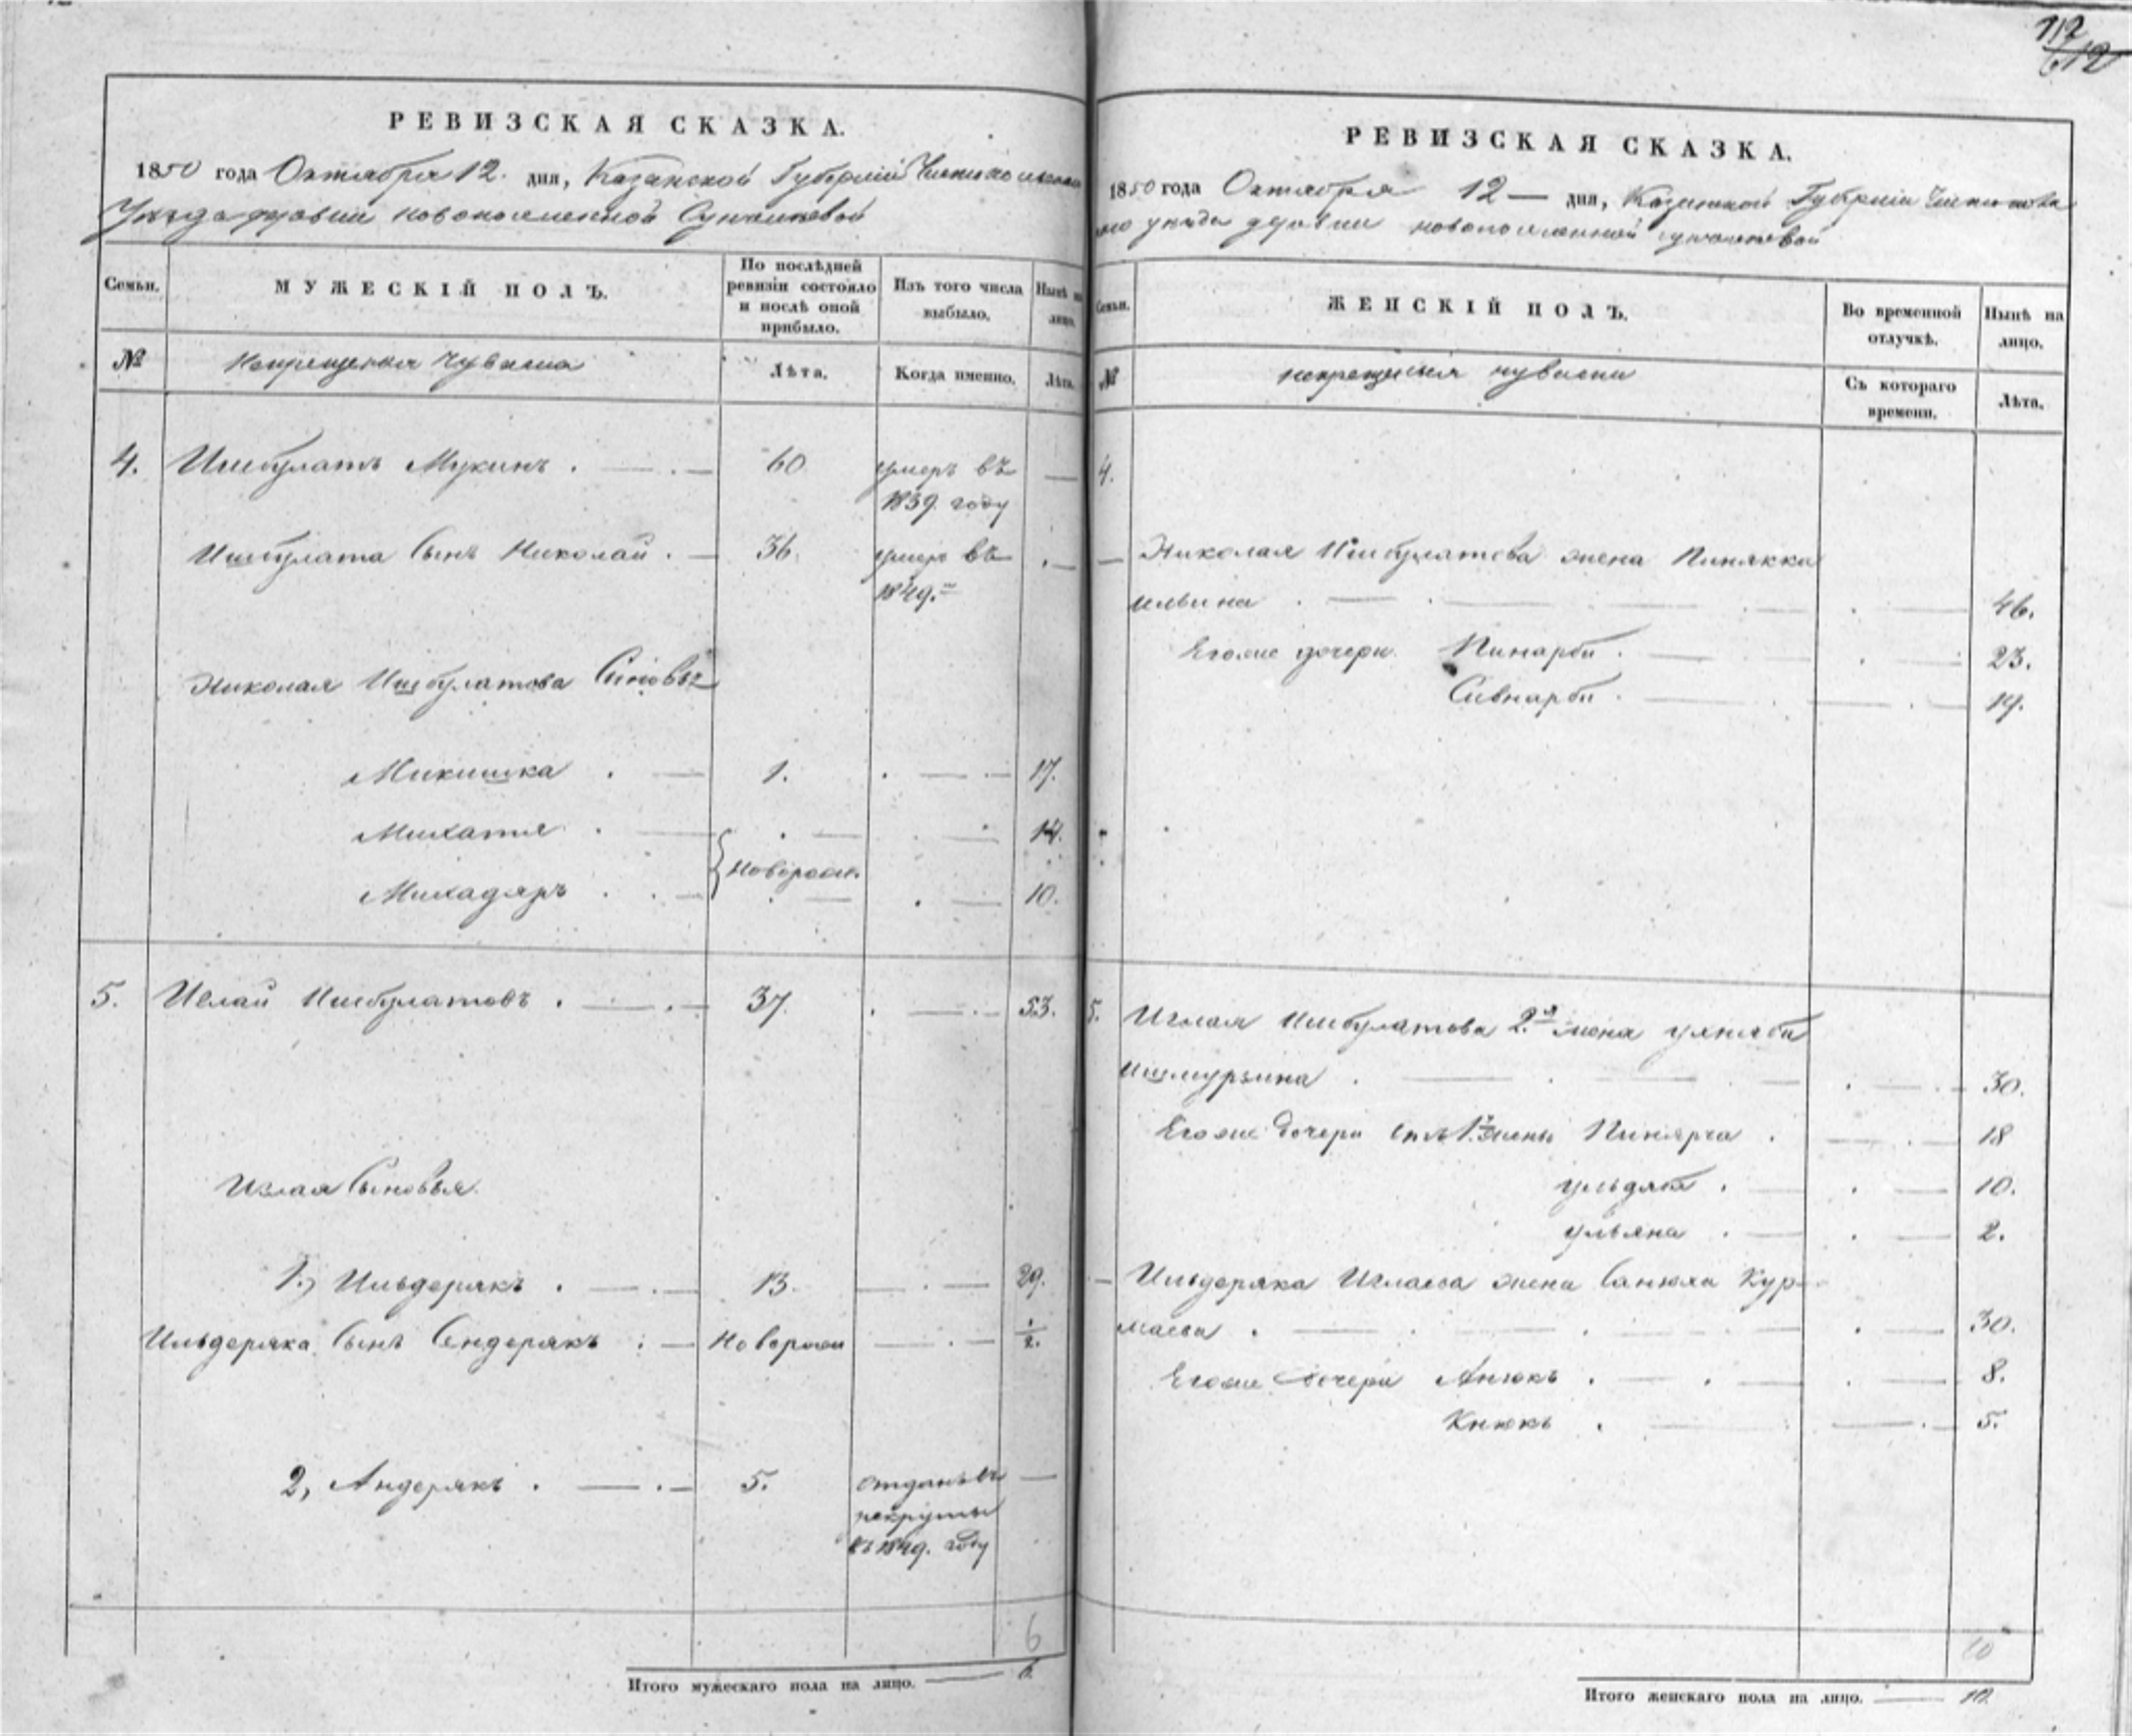 112
612
РЕВИЗСКАЯ СКАЗКА.
1850 года Октября 12. дня, Казанской Губернии Чистопольскаго
Уѣзда деревни новопоселенной
Семьи. МУЖЕСКІЙ ПОЛЪ. По послѣдней ревизіи состояло и послѣ оной прибыло. Изъ того числа выбыло. Нынѣ на лицо.
№ некрещеныя чуваша Лѣта. Когда именно. Лѣта.
4. Ишбулатъ Мукинъ . — . — 60 умеръ въ —
1839. году
Ишбулата Сынъ Николай . — 36. умеръ въ . —
1849.
Николая Ишбулатова Сыновья
Микишка . — 1. . — . — 17.
. — . — . — 14.
новорожд.
. . — . — . — 10.
5. Иглай Ишбулатовъ . — . — 37. . — . — 53.
Иглая Сыновья
1., Ильдерякъ . — . — 13. — . — 29.
Ильдеряка Сынъ Сендерякъ : — Новорожд — . — 1/2.
2, Андерякъ . — . — 5. отданъ въ —
рекруты
въ 1849. году
6
Итого мужескаго пола на лицо. — 6.
РЕВИЗСКАЯ СКАЗКА.
1850 года Октября 12 — дня, Казанской Губерніи Чистопольска
го уѣзда деревни новопоселенной
Семьи. ЖЕНСКІЙ ПОЛЪ. Во временной отлучкѣ. Нынѣ на лицо.
№ некрещеныя чуваши Съ котораго времени. Лѣта.
4.
— Николая Ишбулатова жена Пинякка
ильина . — . — . — 46.
Егоже дочери Пинарби . — . — 23.
Сивнарби . — . — 19.
5. Иглая Ишбулатова 2.я жена
Ишмурзина . — . — . — 30.
Егоже дочери отъ 1.й жены Пинярча . — . — 18
ульдяби . — . — 10.
ульяна . — . — 2.
— Ильдеряка Иглаева жена Санюка Кур-
маева . — . — . — 30.
Егоже дочери Анюкъ . — . — . — 8.
Кнюкъ . — — . — 5.
10
Итого женскаго пола на лицо. — 10.